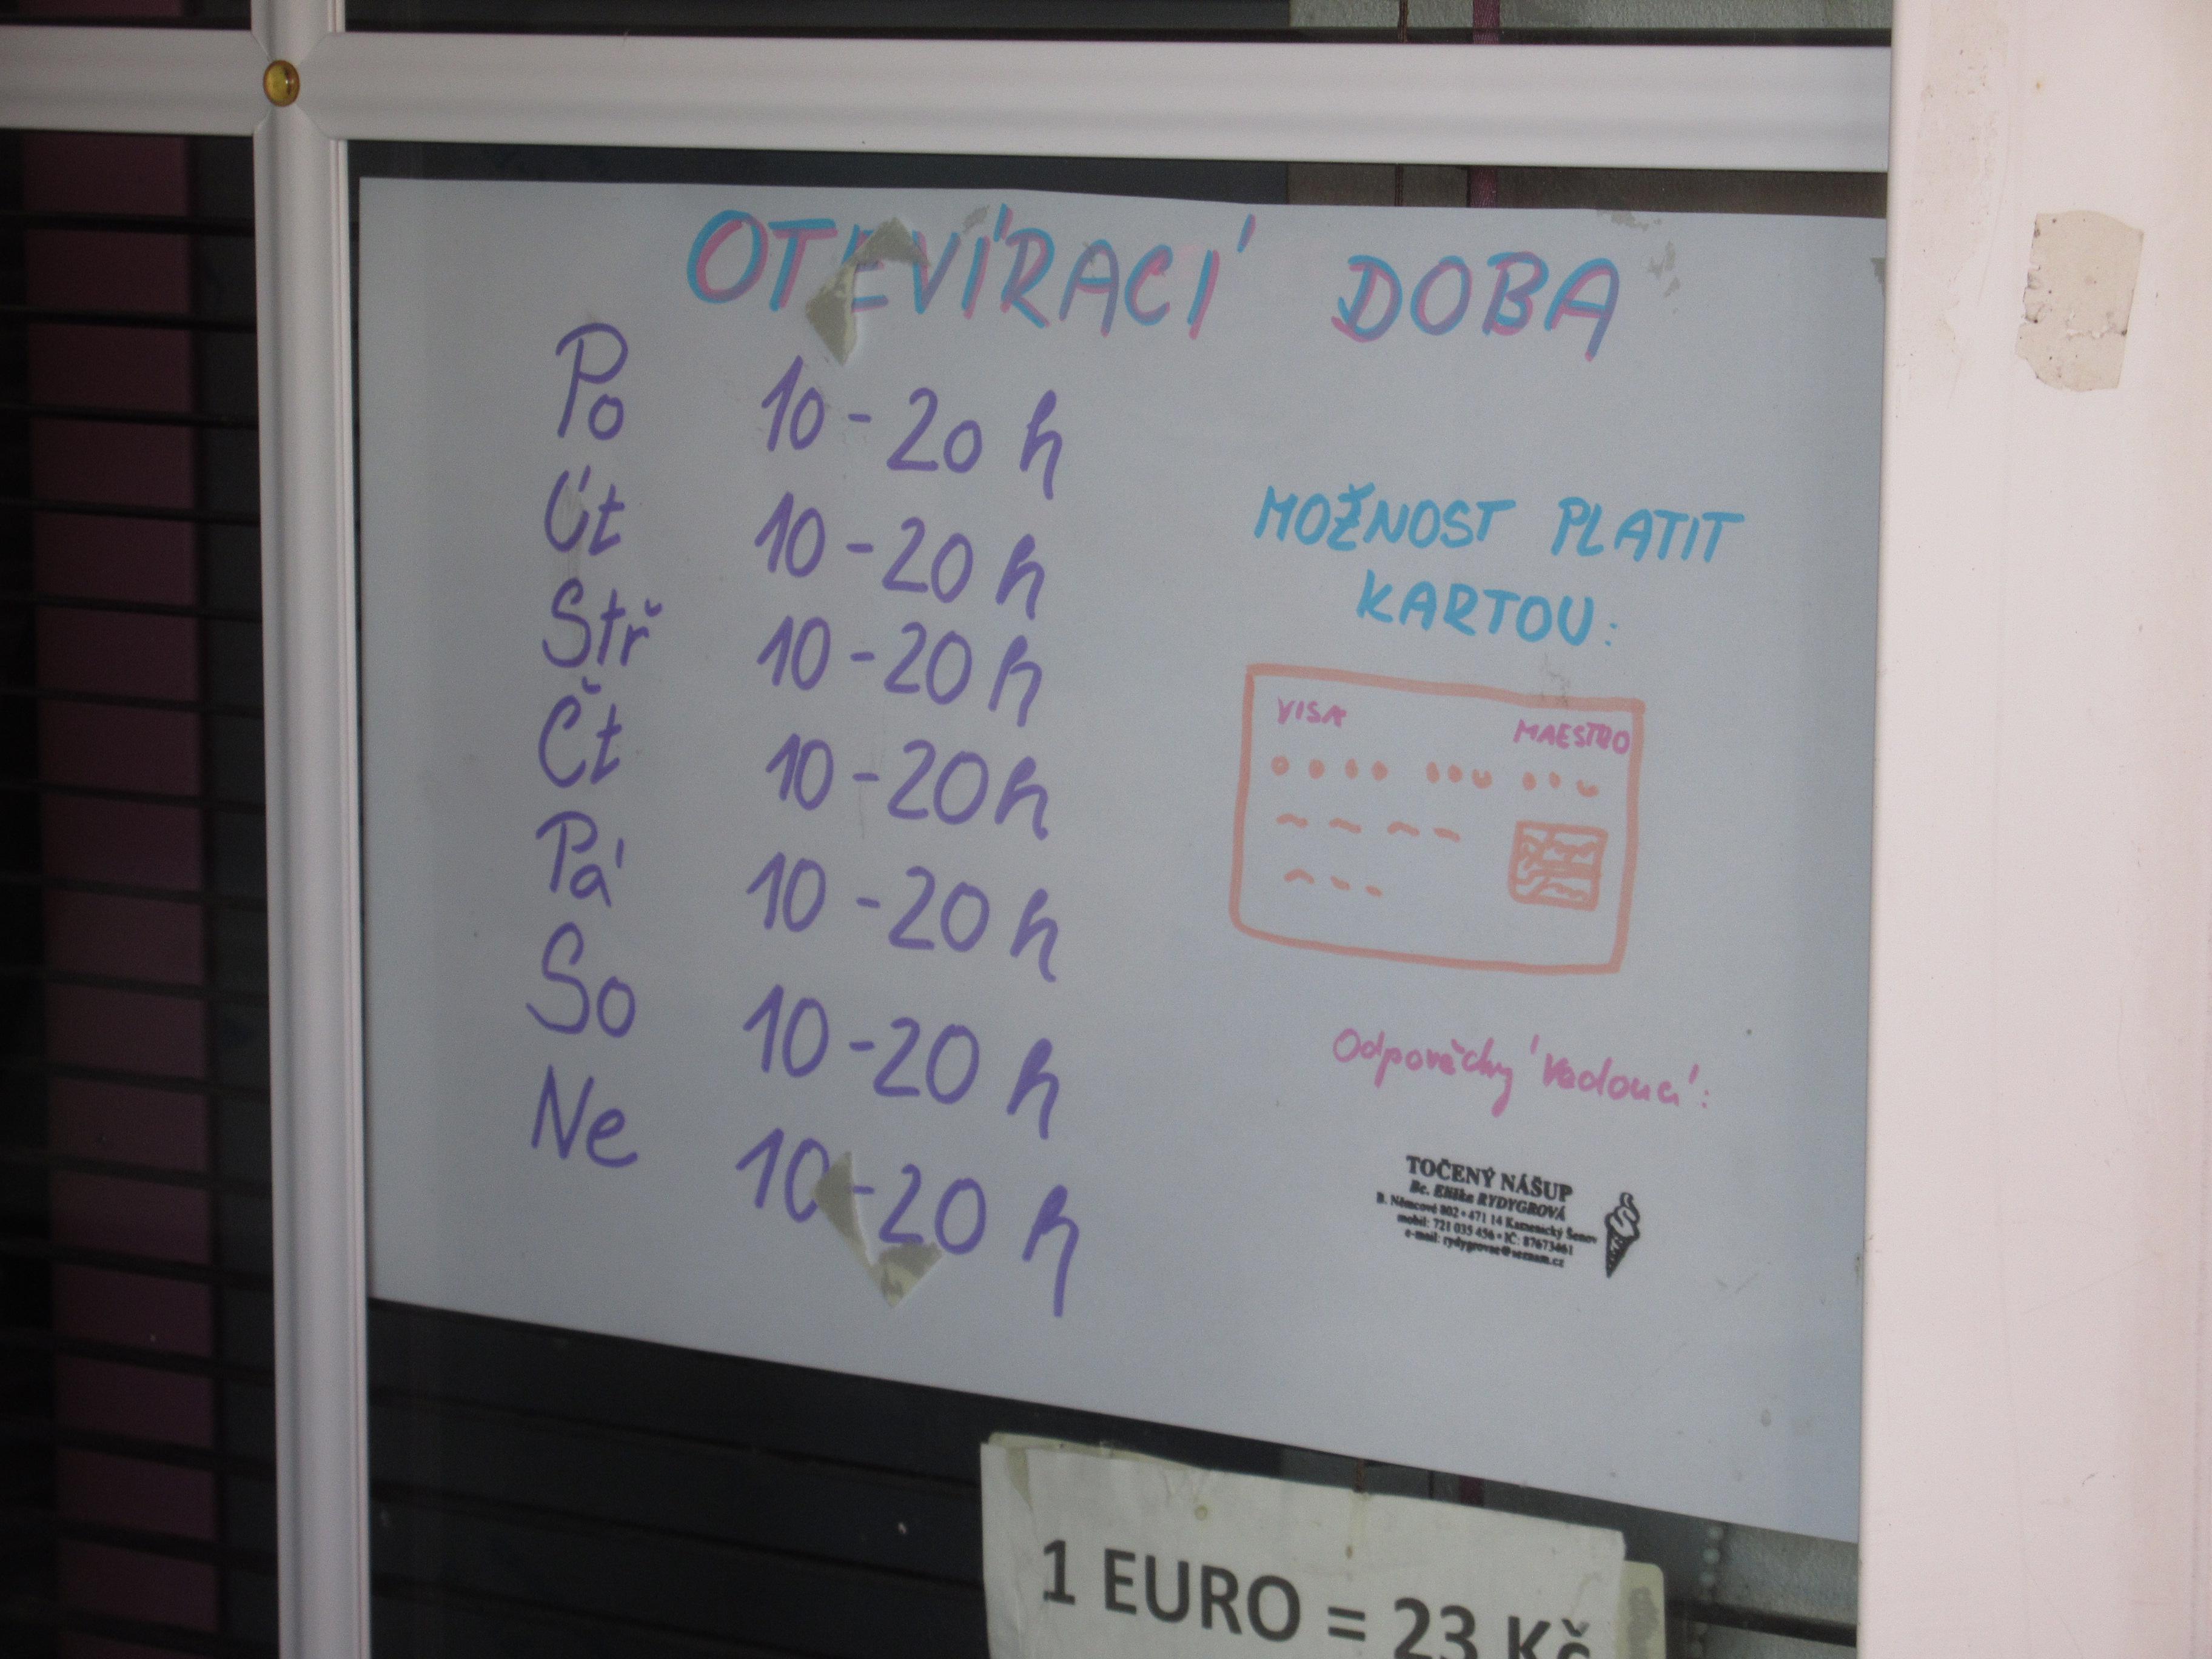 OTEVÍRACÍ DOBA
Po 10-20 h
Út 10-20 h
Stř 10-20 h
Čt 10-20 h
Pá 10-20 h
So 10-20 h
Ne 10-20 h
MOŽNOST PLATIT
KARTOU:
VISA MAESTRO
Odpovědný vedoucí:
TOČENÝ NÁŠUP
Bc. Eliška RYDYGROVÁ
B. Němcové 802 • 471 14 Kamenický Šenov
mobil: 721 035 456 • IČ: 87673461
e-mail: rydygrovae@seznam.cz
1 EURO = 23 Kč